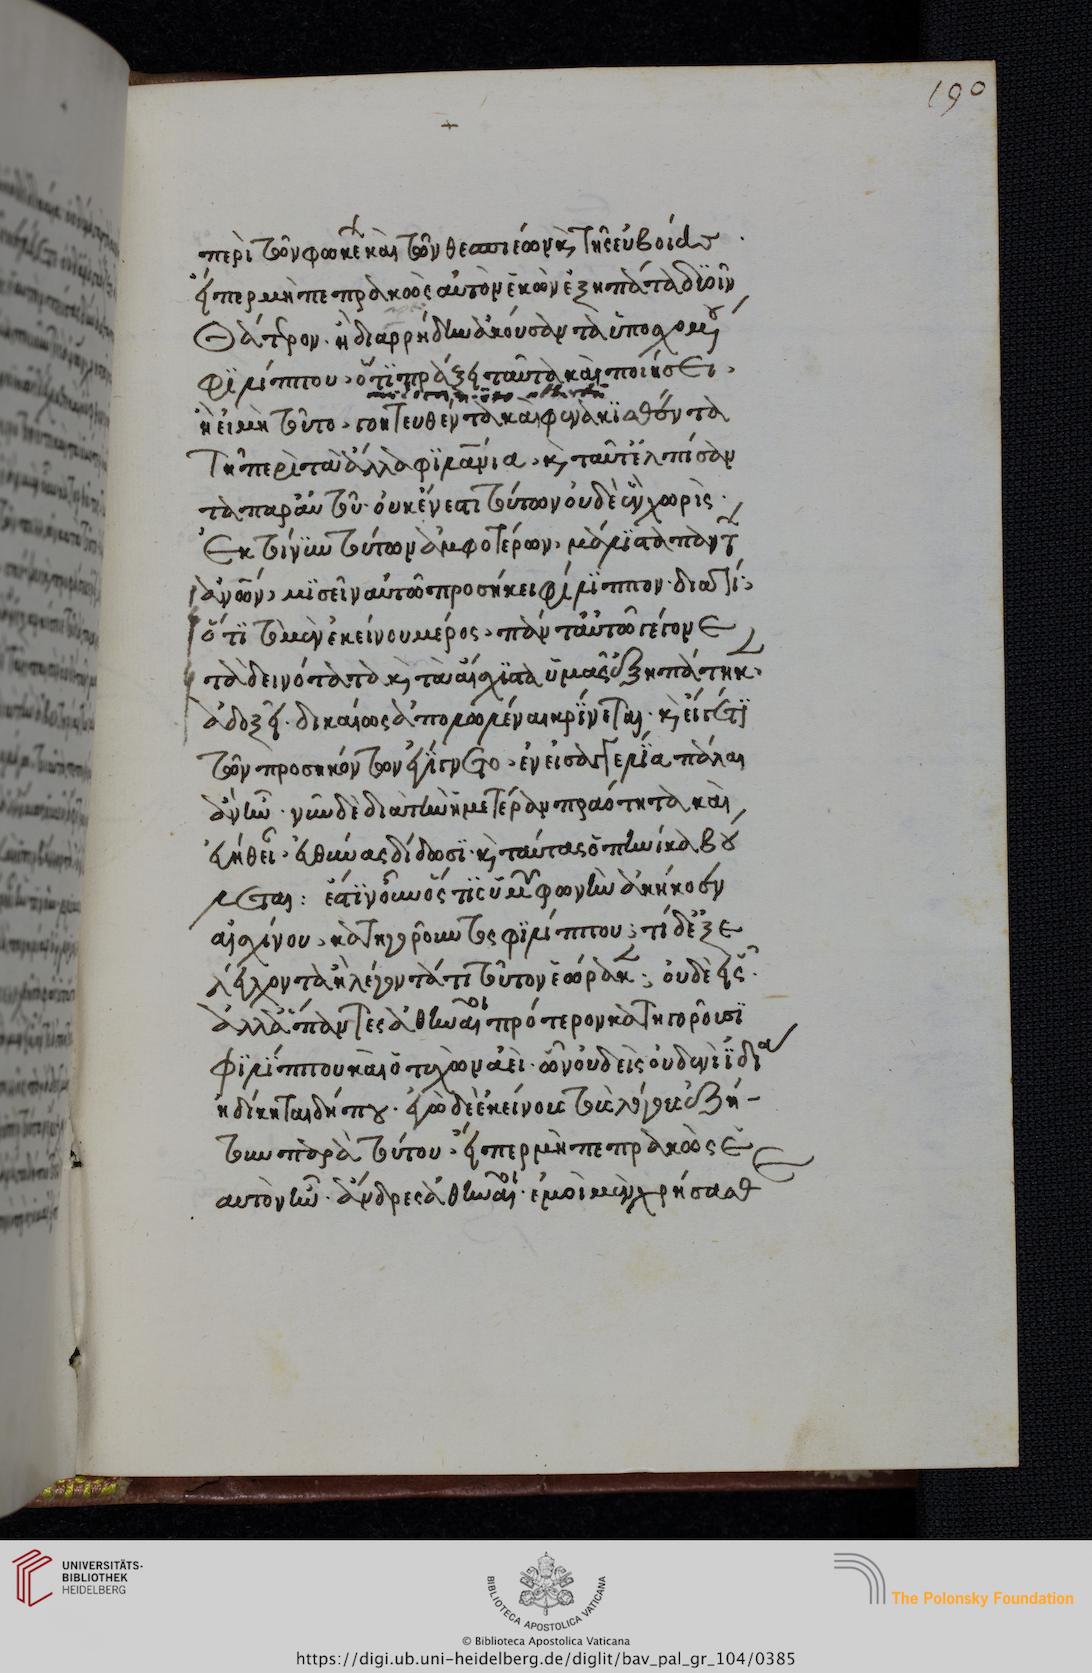 190
περὶ τῶν φωκέων καὶ τῶν θεσπιέων κ τῆς εὐβοίας.
εἴπερ μὴ πεπρακὼς αὑτὸν ἑκὼν ἐξηπάτα δυοῖν
θάτερον. ἢ διαρρήδην ἀκούσαντα ὑποσχομένου
φιλίππου, ὅτι πράξει ταῦτα καὶ ποιήσει,
ἢ εἰ μὴ τοῦτο, γοητευθέντα καὶ φενακισθέντα
τῇ περὶ τἄλλα φιλανθρωπία, κ ταῦτ' ἐλπίσαντα
παρ' αὐτοῦ. οὐκ ἔνεστι τούτων οὐδὲ ἓν χωρίς.
ἐκ τοίνυν τούτων ἀμφοτέρων, μάλιστα πάντων
ἀνθρώπων, μισεῖν αὐτῷ προσήκει φίλιππον. διὰ τί;
ὅτι τὸ μὲν ἐκείνου μέρος, πάντ' αὐτῷ γέγονε
τὰ δεινότατα κ τὰ αἴσχιστα ὑμᾶς ἐξηπάτηκεν.
ἀδοξεῖ. δικαίως ἀπολωλέναι κρίνεται. κ εἴ γέ τι
τῶν προσηκόντων ἐγίγνετο, ἐν εἰσαγγελία πάλαι
ἂν ἦν. νῦν δὲ διὰ τὴν ἡμετέραν πραότητα καὶ
εὐήθειαν, εὐθύνας δίδωσι. κ ταύτας ὁπηνίκα βού
λεται: ἔστιν οὖν ὅστις ὑμῶν φωνὴν ἀκήκοεν
αἰσχίνου, κατηγοροῦντος φιλίππου; τί δὲ ἐξε
λέγχοντα ἢ λέγοντά τι τοῦτον ἑώρακεν; οὐδὲ εἷς.
ἀλλὰ ἅπαντες ἀθηναῖοι πρότερον κατηγοροῦσι
φιλίππου καὶ ὁ τυχὼν ἀεὶ. ὧν οὐδεὶς οὐδὲν ἰδία
ἠδίκηται δήπου. ἐγὼ δὲ ἐκείνους τοὺς λόγους ἐζή-
τουν παρὰ τούτου, εἴπερ μὴ πεπρακὼς ἑ
αυτὸν ἦν. ἄνδρες ἀθηναῖοι. ἐμοὶ μὲν χρήσασθ
UNIVERSITÄTS-
BIBLIOTHEK
HEIDELBERG
BIBLIOTECA APOSTOLICA VATICANA
The Polonsky Foundation
© Biblioteca Apostolica Vaticana
https://digi.ub.uni-heidelberg.de/diglit/bav_pal_gr_104/0385